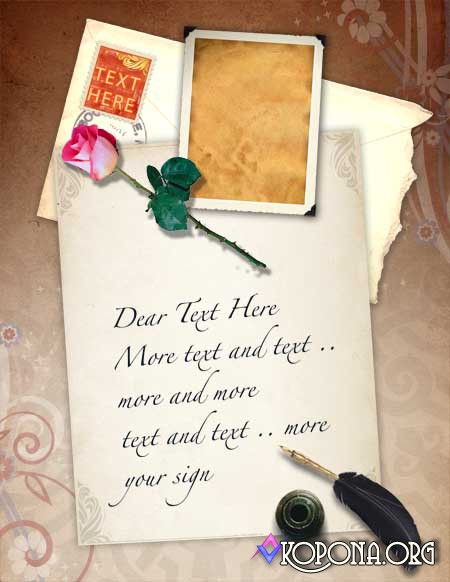 TEXT
HERE
Dear Text Here
More text and text ..
more and more
text and text .. more
your sign
KOPONA.ORG